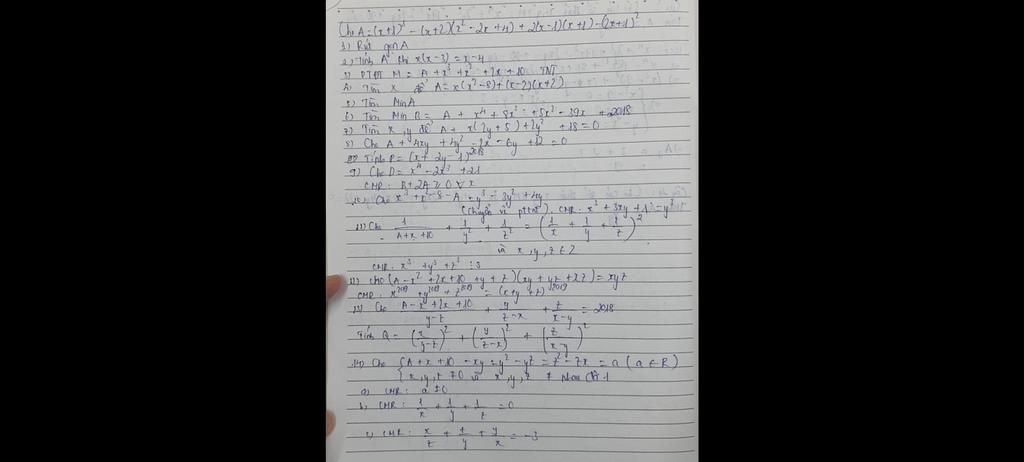 Cho A = (x+1)³ - (x+2)(x² - 2x + 4) + 2(x-1)(x+1) - (2x+1)²
1) Rút gọn A
2) Tính A khi x(x-3) = x-4
3) PTĐT M = A + x³ + x² + 2x + 10 TNT
4) Tìm x để A = x(x²-8) + (x-2)(x+2)
5) Tìm Min A
6) Tìm Min B = A + x⁴ + 8x³ + 5x² - 39x + 2018
7) Tìm x, y để A + x(2y+5) + 2y² + 18 = 0
8) Cho A + 4xy + 4y² - 2x - 6y + 12 = 0
Tính P = (x + 2y - 1)²⁰¹⁸
9) Cho D = x⁴ - 2x³ + 21
CMR: B + 2A ≥ 0 ∀ x
10) Cho x³ + x² - 8 - A - y³ = 3y² + 4y
(Chuyển về pttnt). CMR: x³ + 3xy + 1 = -y³
11) Cho 1/(A+x+10) + 1/y² + 1/z² = (1/x + 1/y + 1/z)²
và x, y, z ∈ Z
CMR: x³ + y³ + z³ ⋮ 3
12) Cho (A - x² + 2x + 10 + y + z)(xy + yz + xz) = xyz
CMR: x²⁰¹⁹ + y²⁰¹⁹ + z²⁰¹⁹ = (x+y+z)²⁰¹⁹
13) Cho (A - x² + 2x + 10)/(y-z) + y/(z-x) + z/(x-y) = 2018
Tính Q = (x/(y-z))² + (y/(z-x))² + (z/(x-y))²
14) Cho {A + x + 10 - xy = y² - yz = z² - zx = a (a ∈ R)
{x, y, z ≠ 0 và x, y, z ≠ nhau
a) CMR: a ≠ 0
b) CMR: 1/x + 1/y + 1/z = 0
c) CMR: x/z + z/y + y/x = -3